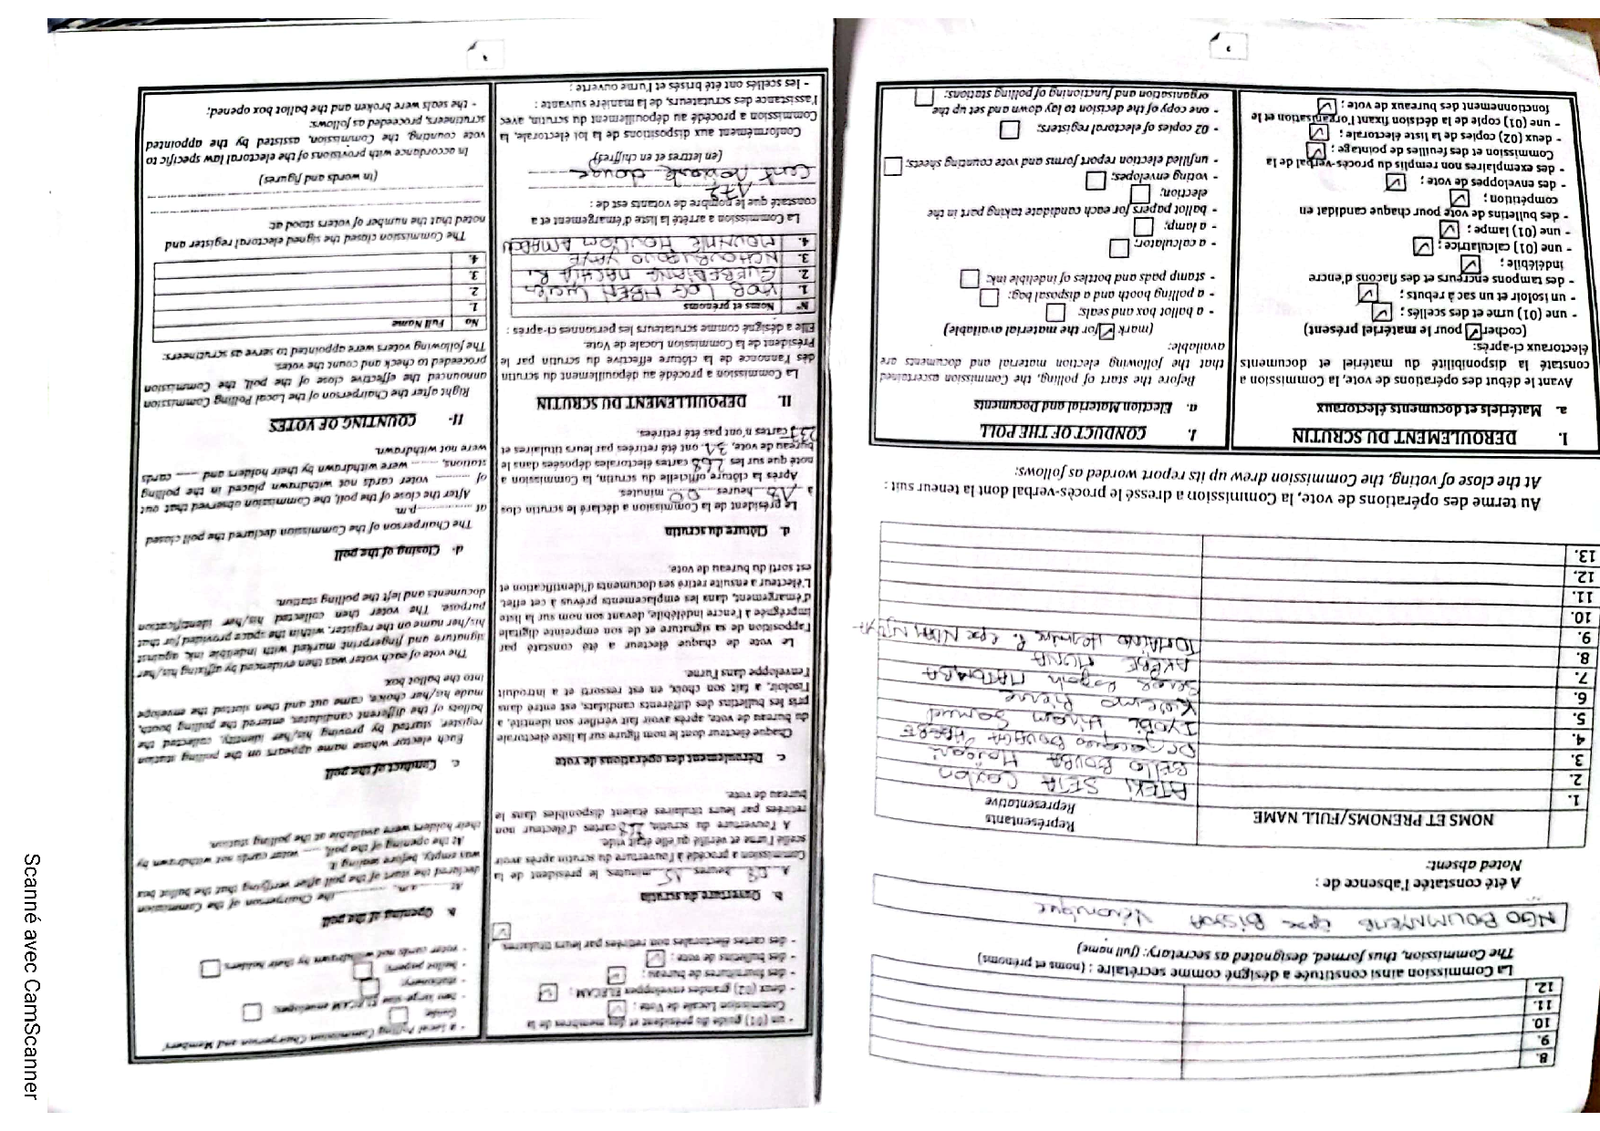 8.
9.
10.
11.
12.
La Commission ainsi constituée a désigné comme secrétaire : (noms et prénoms)
The Commission, thus formed, designated as secretary: (full name)
NGO BOUMNYEMB épse BISSA Véronique
A été constatée l'absence de :
Noted absent:
NOMS ET PRENOMS/FULL NAME
Représentants
Representative
1. ATEKI SETA Caxton
2. BELLO BOUBA Maïgari
3. Dr Jacques BOUGHA HAGBE
4. IYODI Hiram Samuel
5. Kwemo Pierre
6. Serge Espoir MATOMBA
7. AKERE MUNA
8. TOMAINO Hermine P. épse NDAM NJOYA
9.
10.
11.
12.
13.
Au terme des opérations de vote, la Commission a dressé le procès-verbal dont la teneur suit :
At the close of voting, the Commission drew up its report worded as follows:
I. DEROULEMENT DU SCRUTIN
a. Matériels et documents électoraux
Avant le début des opérations de vote, la Commission a
constaté la disponibilité du matériel et documents
électoraux ci-après:
(cocher ☑ pour le matériel présent)
- une (01) urne et des scellés ; ☑
- un isoloir et un sac à rebuts ; ☑
- des tampons encreurs et des flacons d'encre
indélébile ; ☑
- une (01) calculatrice ; ☑
- une (01) lampe ; ☑
- des bulletins de vote pour chaque candidat en
compétition ; ☑
- des enveloppes de vote ; ☑
- des exemplaires non remplis du procès-verbal de la
Commission et des feuilles de pointage ; ☑
- deux (02) copies de la liste électorale ; ☑
- une (01) copie de la décision fixant l'organisation et le
fonctionnement des bureaux de vote ; ☑
I. CONDUCT OF THE POLL
a. Election Material and Documents
Before the start of polling, the Commission ascertained
that the following election material and documents are
available:
(mark ☑ for the material available)
- a ballot box and seals; ☐
- a polling booth and a disposal bag; ☐
- stamp pads and bottles of indelible ink; ☐
- a calculator; ☐
- a lamp; ☐
- ballot papers for each candidate taking part in the
election; ☐
- voting envelopes; ☐
- unfilled election report forms and vote counting sheets; ☐
- 02 copies of electoral registers; ☐
- one copy of the decision to lay down and set up the
organisation and functioning of polling stations; ☐
- un (01) guide du président et des membres de la
Commission Locale de Vote ; ☑
- deux (02) grandes enveloppes ELECAM ; ☑
- des fournitures de bureau ; ☑
- des bulletins de vote ; ☑
- des cartes électorales non retirées par leurs titulaires ☑
b. Ouverture du scrutin
A 08 heures 15 minutes, le président de la
Commission a procédé à l'ouverture du scrutin après avoir
scellé l'urne et vérifié qu'elle était vide.
A l'ouverture du scrutin, 268 cartes d'électeur non
retirées par leurs titulaires étaient disponibles dans le
bureau de vote.
c. Déroulement des opérations de vote
Chaque électeur dont le nom figure sur la liste électorale
du bureau de vote, après avoir fait vérifier son identité, a
pris les bulletins des différents candidats, est entré dans
l'isoloir, a fait son choix, en est ressorti et a introduit
l'enveloppe dans l'urne.
Le vote de chaque électeur a été constaté par
l'apposition de sa signature et de son empreinte digitale
imprégnée à l'encre indélébile, devant son nom sur la liste
d'émargement, dans les emplacements prévus à cet effet.
L'électeur a ensuite retiré ses documents d'identification et
est sorti du bureau de vote.
d. Clôture du scrutin
Le président de la Commission a déclaré le scrutin clos
à 18 heures 00 minutes.
Après la clôture officielle du scrutin, la Commission a
noté que sur les 268 cartes électorales déposées dans le
bureau de vote, 31 ont été retirées par leurs titulaires et
237 cartes n'ont pas été retirées.
II. DEPOUILLEMENT DU SCRUTIN
La Commission a procédé au dépouillement du scrutin
dès l'annonce de la clôture effective du scrutin par le
Président de la Commission Locale de Vote.
Elle a désigné comme scrutateurs les personnes ci-après :
N° Noms et prénoms
1. LOG MBEN Lucien
2. GUEBEDIANG
3. NCHOURUPOUO YAYE
4. MOUNMIE MOULIOM AMADOU
La Commission a arrêté la liste d'émargement et a
constaté que le nombre de votants est de :
172
Cent Soixante douze
(en lettres et en chiffres)
Conformément aux dispositions de la loi électorale, la
Commission a procédé au dépouillement du scrutin, avec
l'assistance des scrutateurs, de la manière suivante :
- les scellés ont été brisés et l'urne ouverte ;
- a Local Polling Commission Chairperson and Members'
Guide; ☐
- two large size ELECAM envelopes; ☐
- stationery; ☐
- ballot papers; ☐
- voter cards not withdrawn by their holders; ☐
b. Opening of the poll
At ............a.m, ............ the Chairperson of the Commission
declared the start of the poll after verifying that the ballot box
was empty, before sealing it.
At the opening of the poll, ...... voter cards not withdrawn by
their holders were available at the polling station.
c. Conduct of the poll
Each elector whose name appears on the polling station
register, started by proving his/her identity, collected the
ballots of the different candidates, entered the polling booth,
made his/her choice, came out and then slotted the envelope
into the ballot box
The vote of each voter was then evidenced by affixing his/her
signature and fingerprint marked with indelible ink, against
his/her name on the register, within the space provided for that
purpose. The voter then collected his/her identification
documents and left the polling station.
d- Closing of the poll
The Chairperson of the Commission declared the poll closed
at ............p.m.
After the close of the poll, the Commission observed that out
of ......... voter cards not withdrawn placed in the polling
stations, ....... were withdrawn by their holders and ...... cards
were not withdrawn.
II- COUNTING OF VOTES
Right after the Chairperson of the Local Polling Commission
announced the effective close of the poll, the Commission
proceeded to check and count the votes.
The following voters were appointed to serve as scrutineers:
No Full Name
1.
2
3.
4.
The Commission closed the signed electoral register and
noted that the number of voters stood at:
(in words and figures)
In accordance with provisions of the electoral law specific to
vote counting, the Commission, assisted by the appointed
scrutineers, proceeded as follows:
- the seals were broken and the ballot box opened;
Scanné avec CamScanner